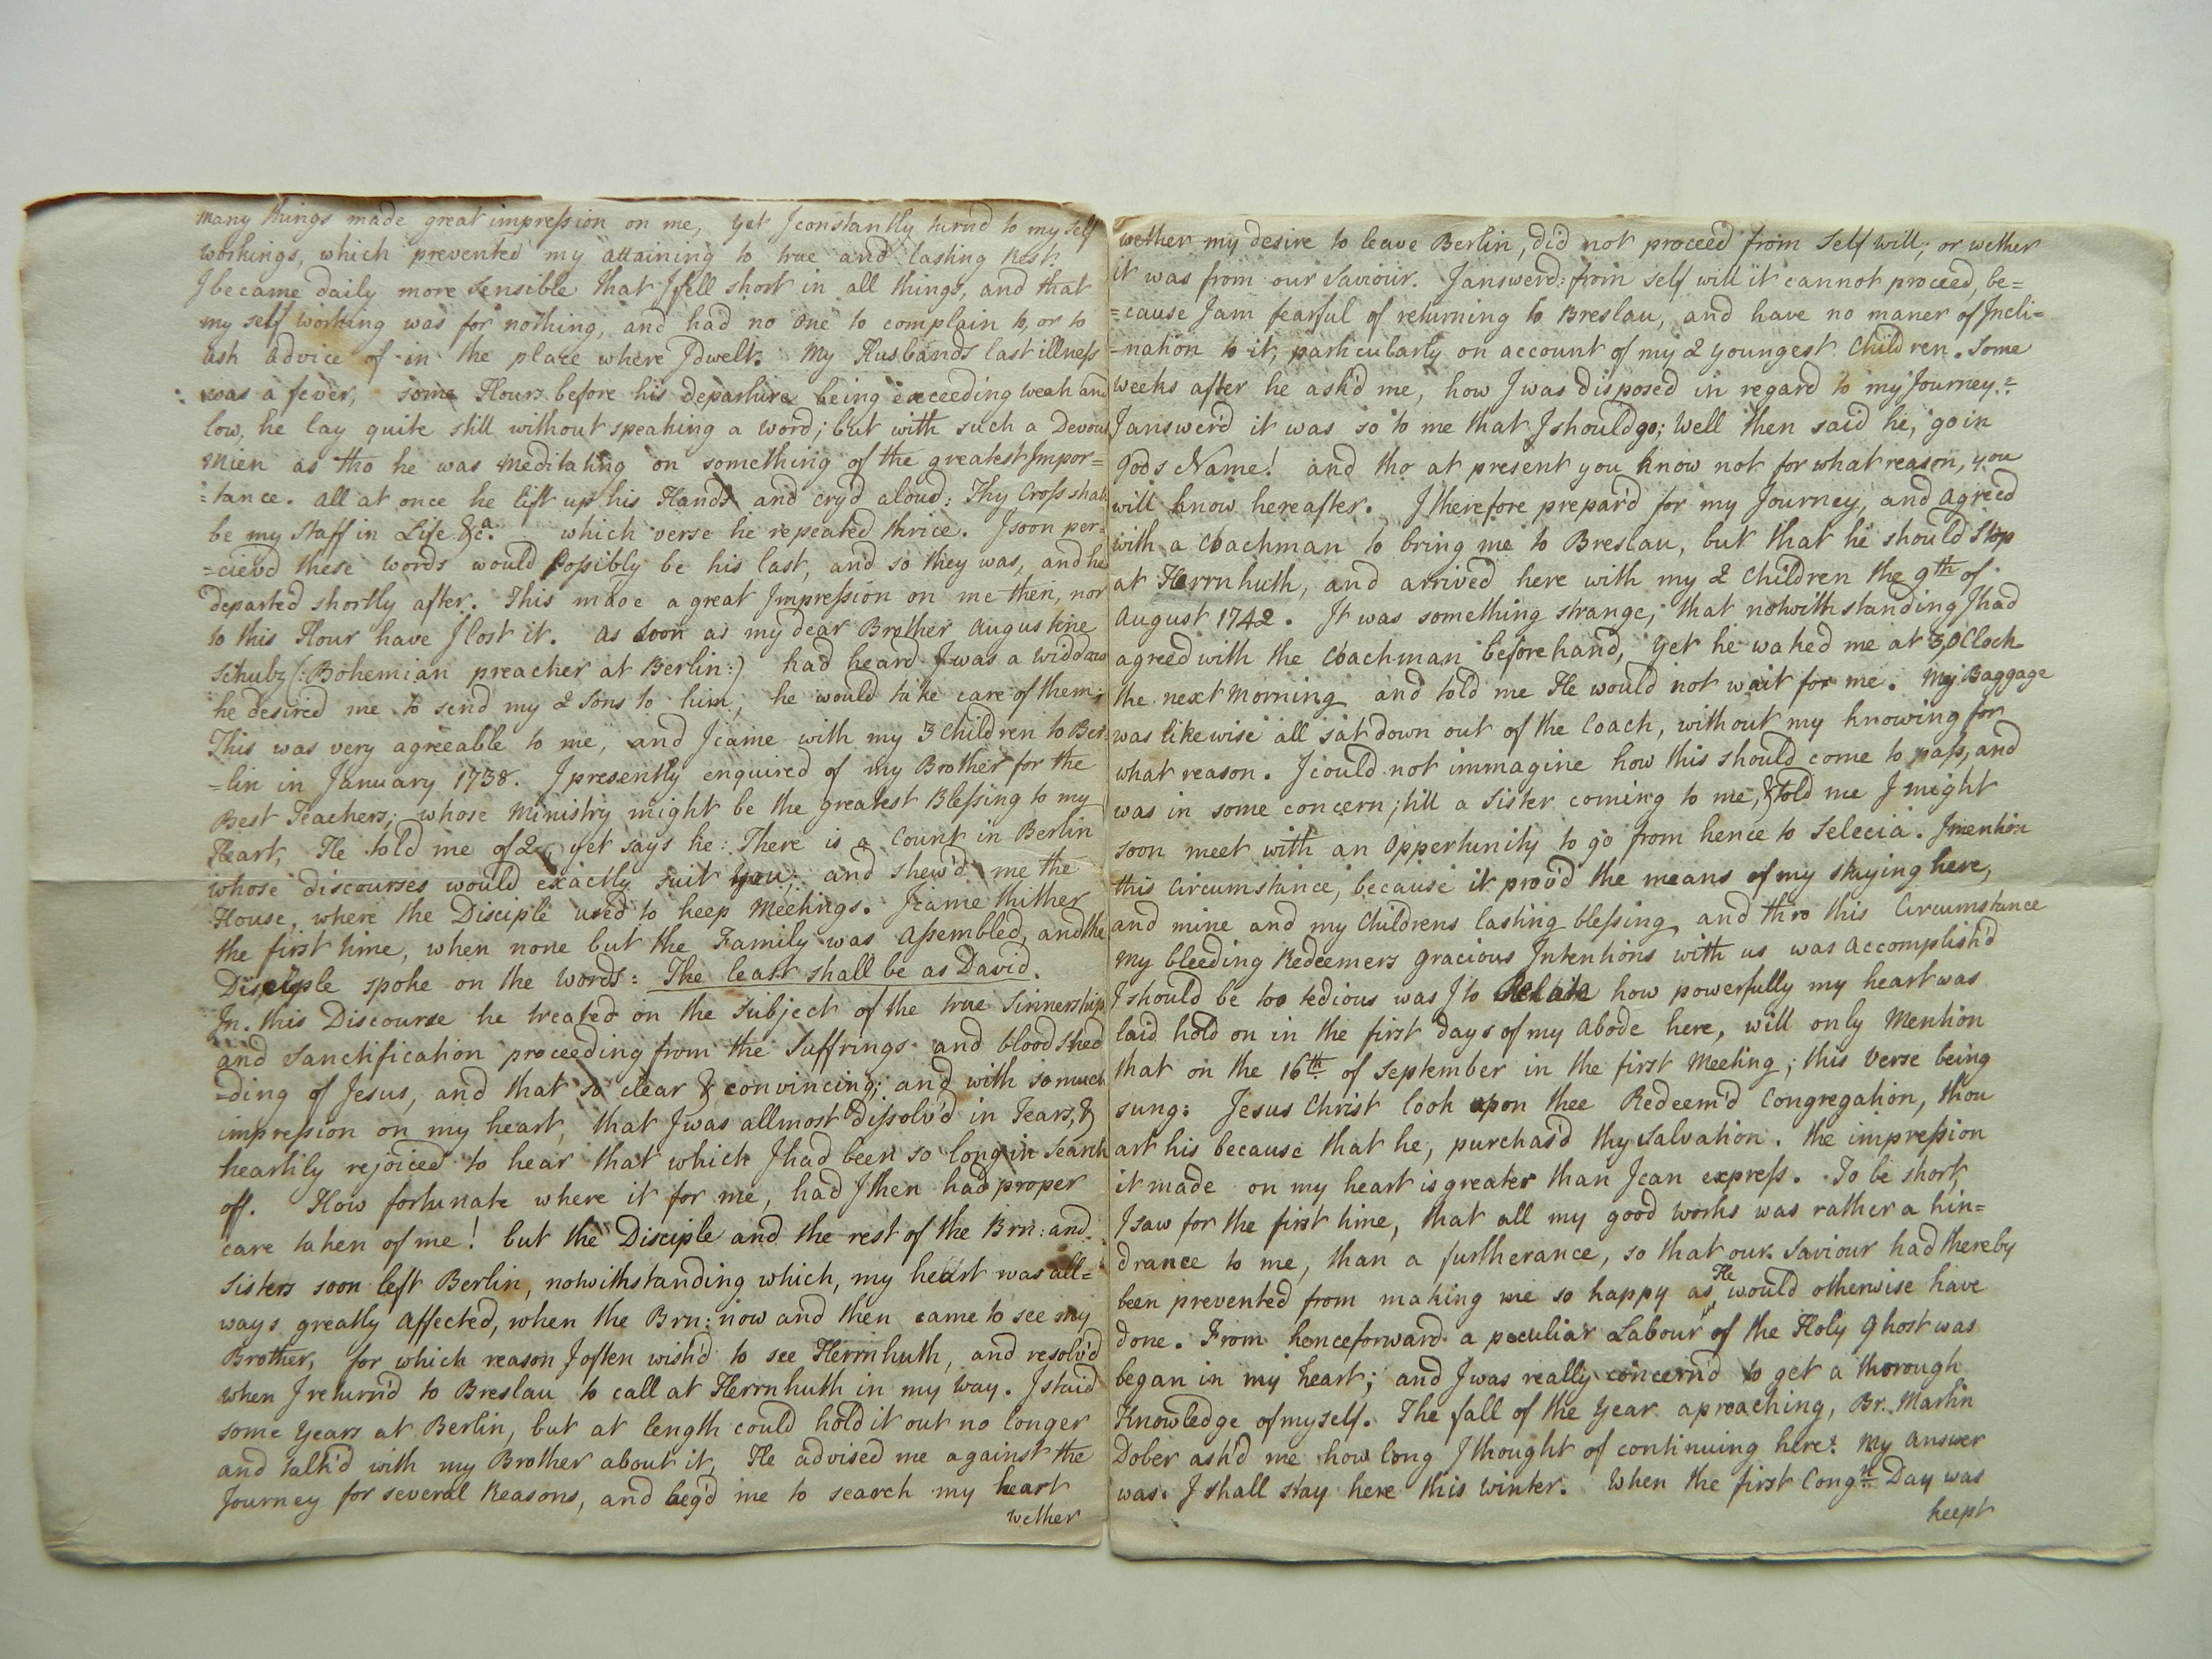 many things made great impression on me, yet I constantly turn'd to my self
workings, which prevented my attaining to true and lasting Rest.
I became daily more sensible that I fell short in all things, and that
my self working was for nothing, and had no one to complain to, or to
ask advice of in the place where I dwelt. My Husbands last illness
was a fever, some Hours before his departure being exceeding weak and
low, he lay quite still without speaking a word; but with such a Devout
Mien as tho he was Meditating on something of the greatest Impor=
=tance. all at once he lift up his Hands and cryd aloud: Thy Cross shall
be my Staff in Life &c.a which verse he repeated thrice. I soon per=
=cievd these words would Possibly be his last, and so they was, and he
departed shortly after. This made a great Impression on me then, nor
to this Hour have I lost it. As soon as my dear Brother Augustine
Schulz (:Bohemian preacher at Berlin:) had heard I was a widdow
he desired me to send my 2 Sons to him, he would take care of them;
This was very agreeable to me, and I came with my 3 Children to Ber=
=lin in January 1738. I presently enquired of my Brother for the
Best Teachers; whose Ministry might be the greatest Blessing to my
Heart, He told me of 2, yet says he: There is a Count in Berlin
whose discourses would exactly suit you; and shew'd me the
House, where the Disciple used to keep Meetings. I came thither
the first time, when none but the Family was Assembled, and the
Disciple spoke on the words: The least shall be as David.
In this Discourse he treated on the subject of the true Sinnership
and Sanctification proceeding from the Suffrings and blood shed
=ding of Jesus, and that so clear & convincing; and with so much
impression on my heart, that I was allmost dissolv'd in Tears, &
heartily rejoiced to hear that which I had been so long in Search
off. How fortunate where it for me, had I then had proper
care taken of me! but the Disciple and the rest of the Brn: and
Sisters soon left Berlin, notwithstanding which, my heart was all=
ways greatly affected, when the Brn: now and then came to see my
Brother, for which reason I often wish'd to see Herrnhuth, and resolv'd
when I return'd to Breslau to call at Herrnhuth in my way. I staid
some Years at Berlin, but at length could hold it out no longer
and talk'd with my Brother about it, He advised me against the
Journey for several Reasons, and beg'd me to search my heart
wether
wether my desire to leave Berlin, did not proceed from Self will; or wether
it was from our Saviour. I answerd: from self will it cannot proceed, be=
=cause I am fearful of returning to Breslau, and have no maner of Incli=
=nation to it, particularly on account of my 2 youngest Children. Some
weeks after he ask'd me, how I was disposed in regard to my Journey.=
I answer'd it was so to me that I should go; Well then said he, go in
gods Name! and tho at present you know not for what reason, you
will know hereafter. I therefore prepar'd for my Journey, and agreed
with a Coachman to bring me to Breslau, but that he should Stop
at Herrnhuth, and arrived here with my 2 Children the 9th of
August 1742. It was something strange; that notwithstanding I had
agreed with the Coachman beforehand, Yet he waked me at 3, o Clock
the next Morning and told me He would not wait for me. My Baggage
was likewise all sat down out of the Coach, without my knowing for
what reason. I could not immagine how this should come to pass, and
was in some concern; till a Sister coming to me, & told me I might
soon meet with an Oppertunity to go from hence to Selecia. I mention
this Circumstance, because it prov'd the means of my staying here,
and mine and my Childrens lasting blessing, and thro this Circumstance
my bleeding Redeemers gracious Intentions with us was accomplish'd
I should be too tedious was I to Relate how powerfully my heart was
laid hold on in the first days of my Abode here, will only Mention
that on the 16th of September in the first Meeting; this Verse being
sung: Jesus Christ look upon thee Redeem'd Congregation, thou
art his because that he, purchas'd thy Salvation. the impression
it made on my heart is greater than I can express. To be short,
I saw for the first time, that all my good works was rather a hin=
drance to me, than a furtherance, so that our Saviour had thereby
been prevented from making me so happy as He would otherwise have
done. From henceforward a peculiar Labour of the Holy Ghost was
began in my heart; and I was really concern'd to get a thorough
Knowledge of myself. The fall of the Year aproaching, Br. Martin
Dober ask'd me how long I thought of continuing here? My answer
was. I shall stay here this Winter. When the first Congn Day was
keept